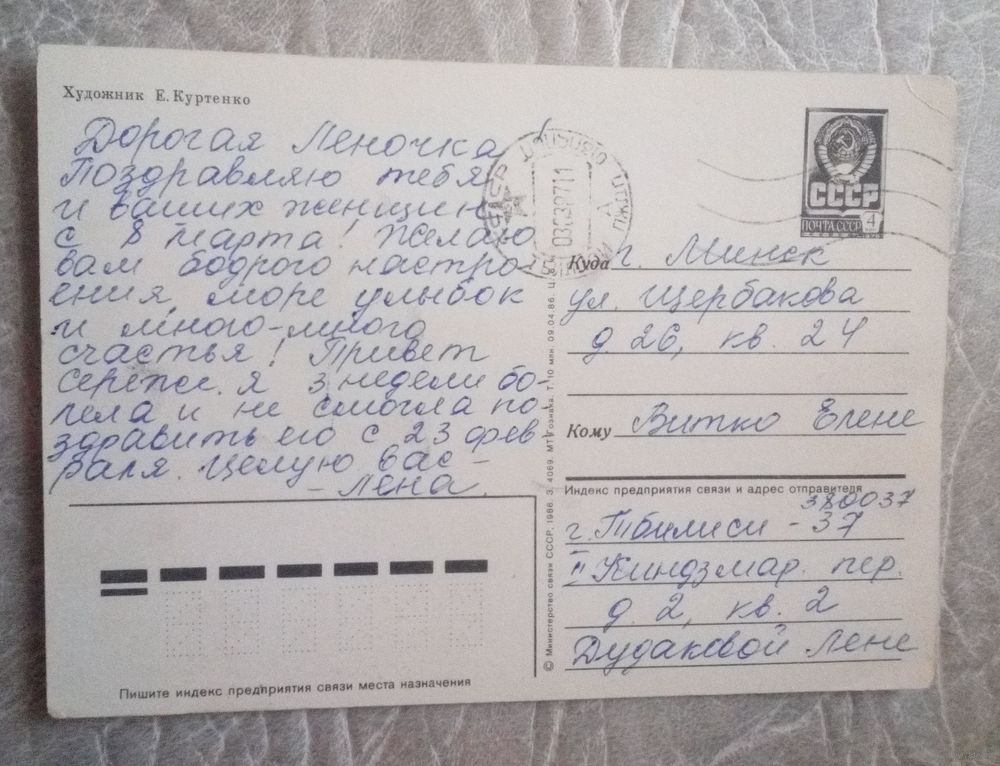 Художник Е. Куртенко
Дорогая Леночка!
Поздравляю тебя
и ваших женщин
с 8 марта! Желаю
вам бодрого настро-
ения, море улыбок
и много-много
счастья! Привет
Сереже. Я 3 недели бо-
лела и не смогла по-
здравить его с 23 фев-
раля. Целую вас –
– Лена.
СССР
ПОЧТА СССР 4
Куда г. Минск
ул. Щербакова
д. 26, кв. 24
Кому Витко Елене
Индекс предприятия связи и адрес отправителя
380037
г. Тбилиси - 37
II Киндзмар. пер.
д. 2, кв. 2
Дудаковой Лене
Пишите индекс предприятия связи места назначения